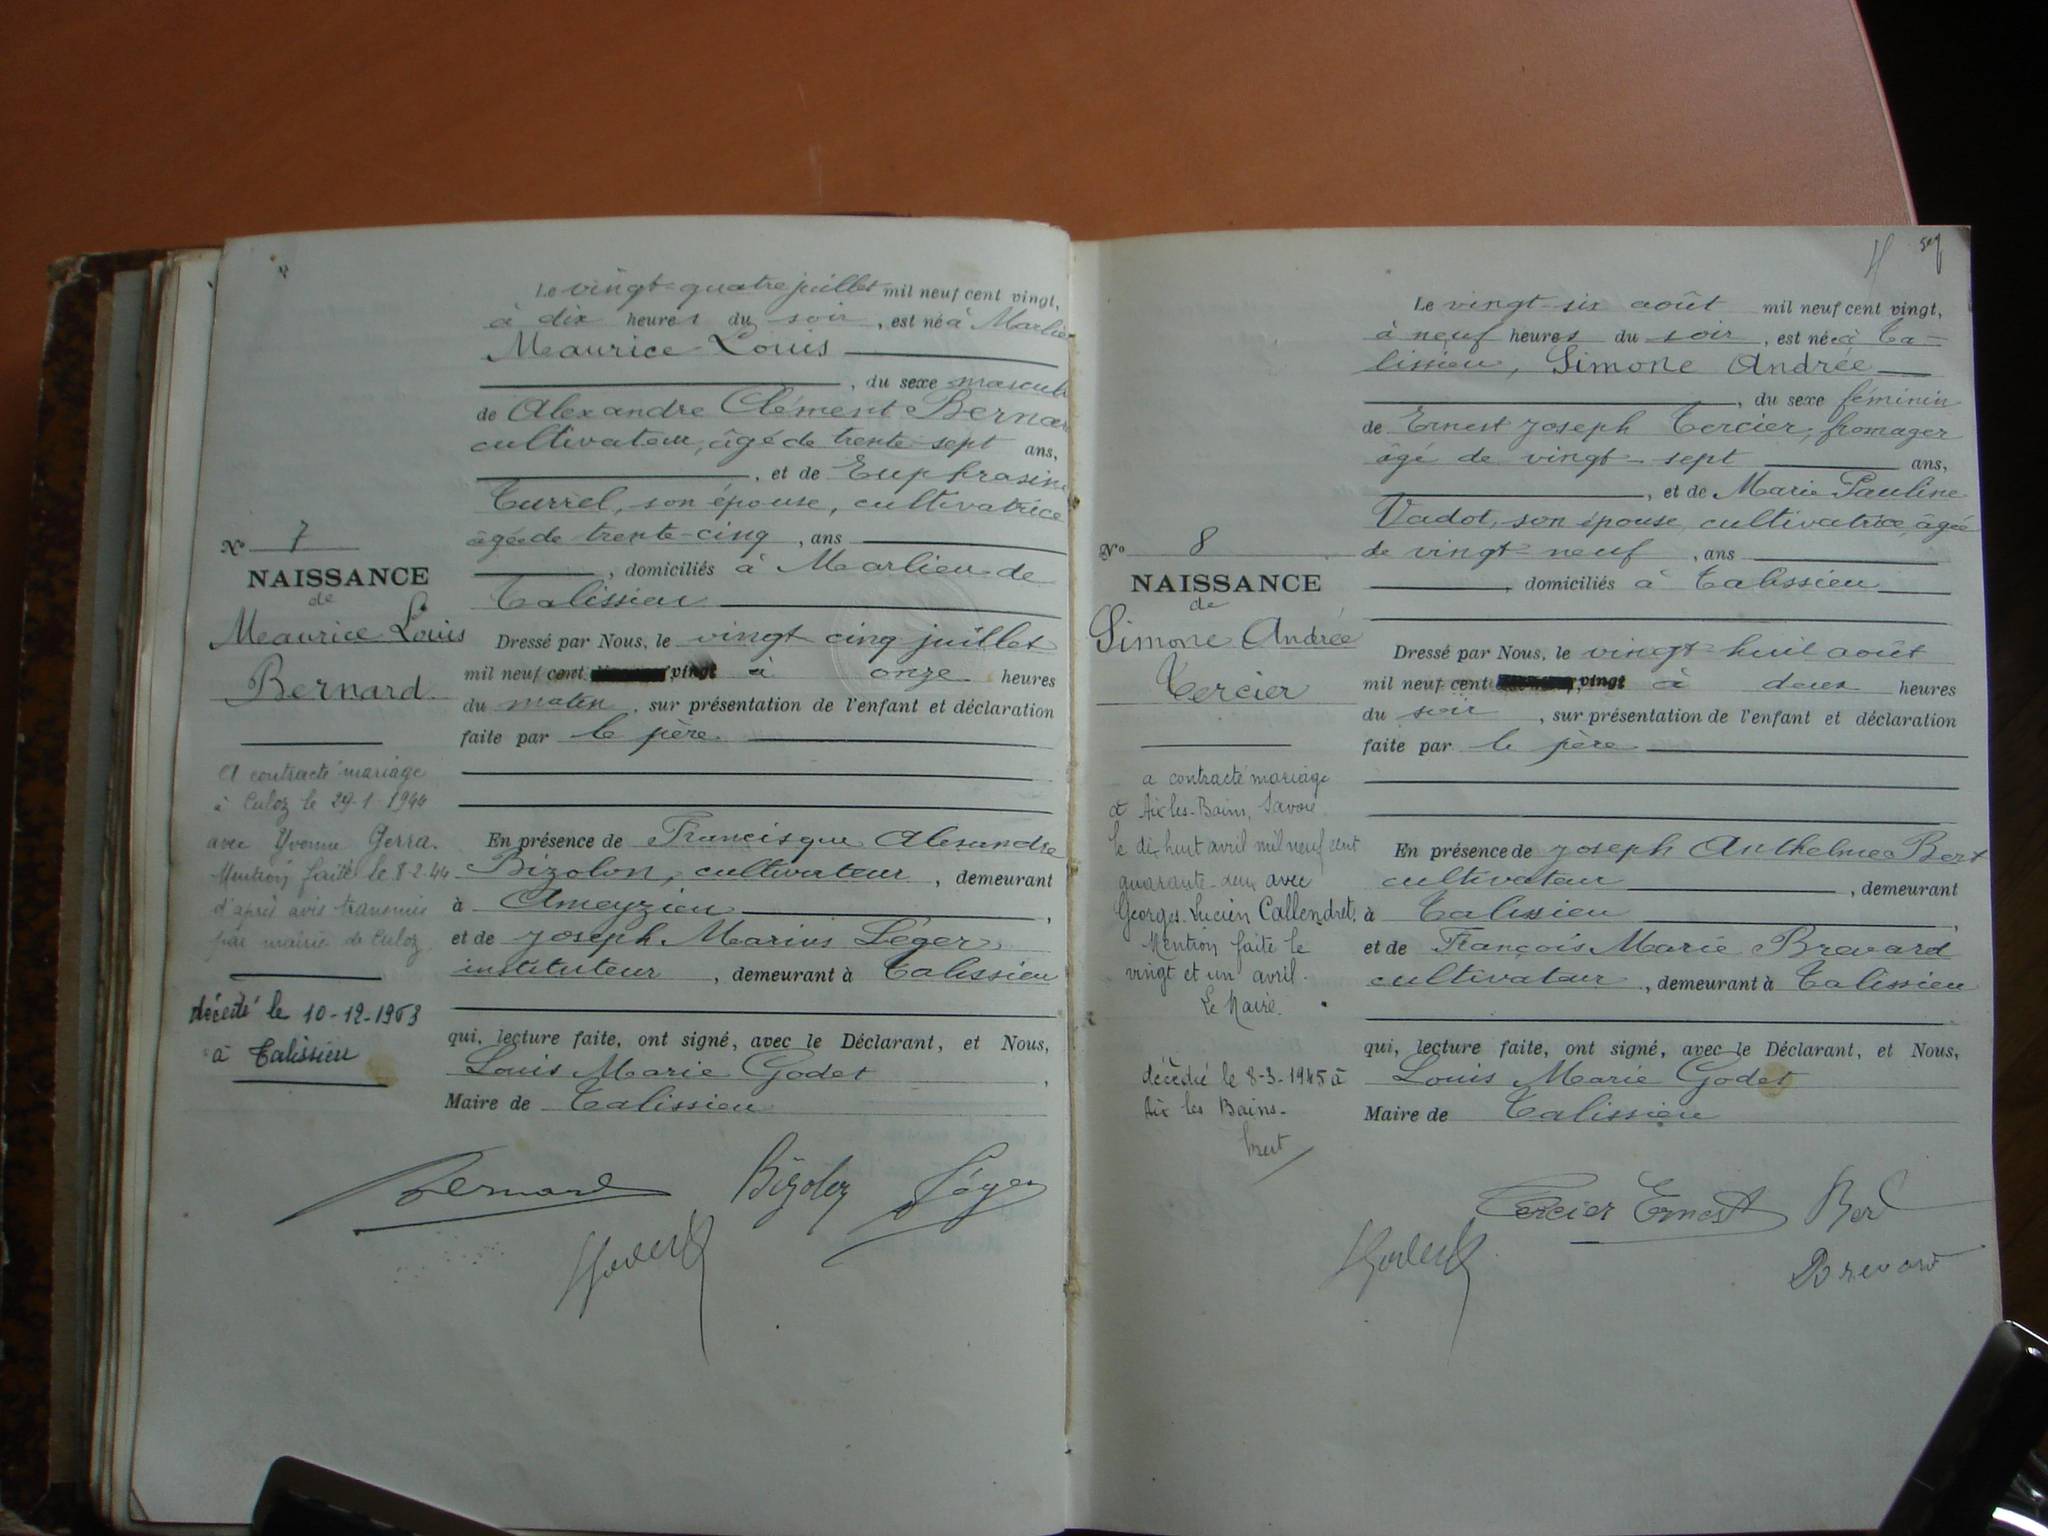 Le vingt-quatre juillet mil neuf cent vingt,
à dix heures du soir, est né à Marlieu
Maurice Louis
, du sexe masculin
de Alexandre Clément Bernard
cultivateur, âgé de trente-sept ans,
, et de Euphrasine
Turrel, son épouse, cultivatrice
âgée de trente-cinq, ans
, domiciliés à Marlieu de
Talissieu
N° 7
NAISSANCE
de
Maurice Louis
Bernard
Dressé par Nous, le vingt cinq juillet
mil neuf cent vingt à onze heures
du matin, sur présentation de l'enfant et déclaration
faite par le père.
A contracté mariage
à Culoz le 29-1-1944
avec Yvonne Gerra.
Mention faite le 8-2-44
d'après avis transmis
par mairie de Culoz
décédé le 10-12-1963
à Talissieu
En présence de Francisque Alexandre
Bizolon, cultivateur, demeurant
à Ameyzieu,
et de Joseph Marius Léger,
instituteur, demeurant à Talissieu
qui, lecture faite, ont signé, avec le Déclarant, et Nous,
Louis Marie Godet,
Maire de Talissieu
Bernard Bizolon Léger
Godet
509
Le vingt-six août mil neuf cent vingt,
à neuf heures du soir, est née à Ta-
lissieu, Simone Andrée
, du sexe féminin
de Ernest Joseph Tercier, fromager
âgé de vingt-sept ans,
, et de Marie Pauline
Vadot, son épouse, cultivatrice, âgée
de vingt-neuf, ans
, domiciliés à Talissieu
N° 8
NAISSANCE
de
Simone Andrée
Tercier
Dressé par Nous, le vingt-huit août
mil neuf cent vingt à deux heures
du soir, sur présentation de l'enfant et déclaration
faite par le père
a contracté mariage
à Aix-les-Bains, Savoie
le dix huit avril mil neuf cent
quarante-deux avec
Georges-Lucien Callendret.
Mention faite le
vingt et un avril.
Le Maire.
décédée le 8-3-1945 à
Aix les Bains-
En présence de Joseph Anthelme Bert
cultivateur, demeurant
à Talissieu,
et de François Marie Brevard
cultivateur, demeurant à Talissieu
qui, lecture faite, ont signé, avec le Déclarant, et Nous,
Louis Marie Godet
Maire de Talissieu
Tercier Ernest Bert
Godet Brevard